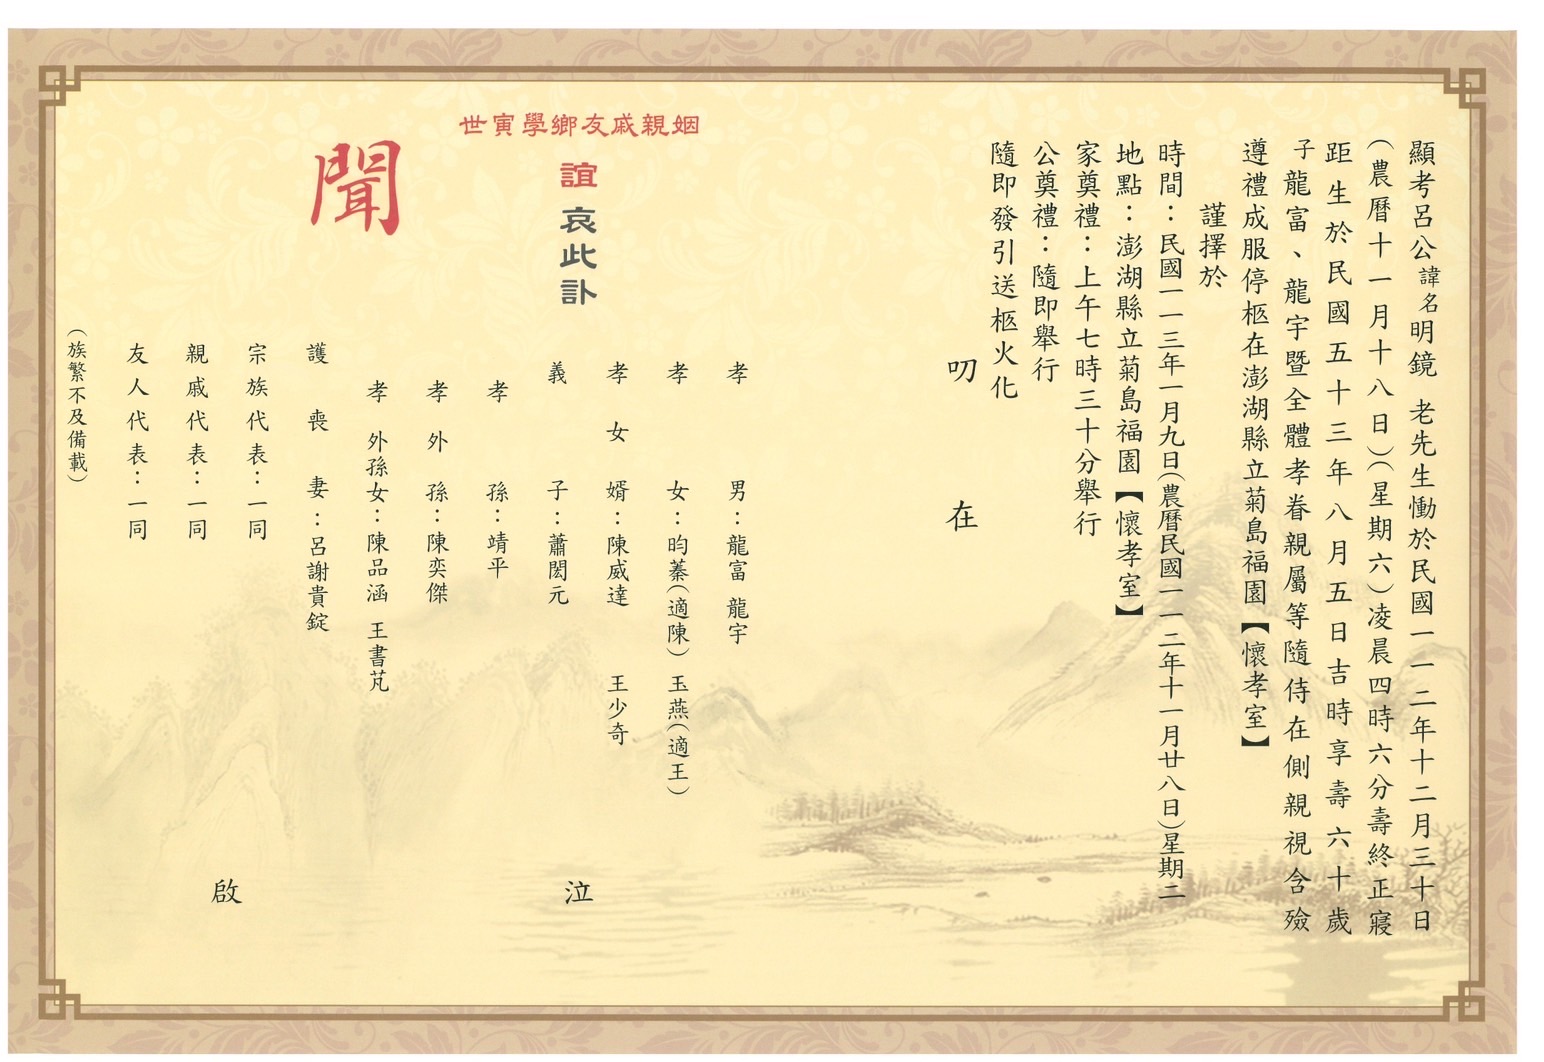 顯考呂公諱名明鏡 老先生慟於民國一一二年十二月三十日
(農曆十一月十八日)(星期六)凌晨四時六分壽終正寢
距生於民國五十三年八月五日吉時享壽六十歲
子龍富、龍宇暨全體孝眷親屬等隨侍在側親視含殮
遵禮成服停柩在澎湖縣立菊島福園【懷孝室】
謹擇於
時間：民國一一三年一月九日(農曆民國一一二年十一月廿八日)星期二
地點：澎湖縣立菊島福園【懷孝室】
家奠禮：上午七時三十分舉行
公奠禮：隨即舉行
隨即發引送柩火化
叨 在
姻親戚友鄉學寅世
誼 哀此訃
聞
孝 男：龍富 龍宇
孝 女：昀蓁(適陳) 玉燕(適王)
孝女婿：陳威達 王少奇
義 子：蕭閎元
孝 孫：靖平
孝外 孫：陳奕傑
孝外孫女：陳品涵 王書芃
護喪妻：呂謝貴錠
泣
宗族代表：一同
親戚代表：一同
友人代表：一同
啟
(族繁不及備載)